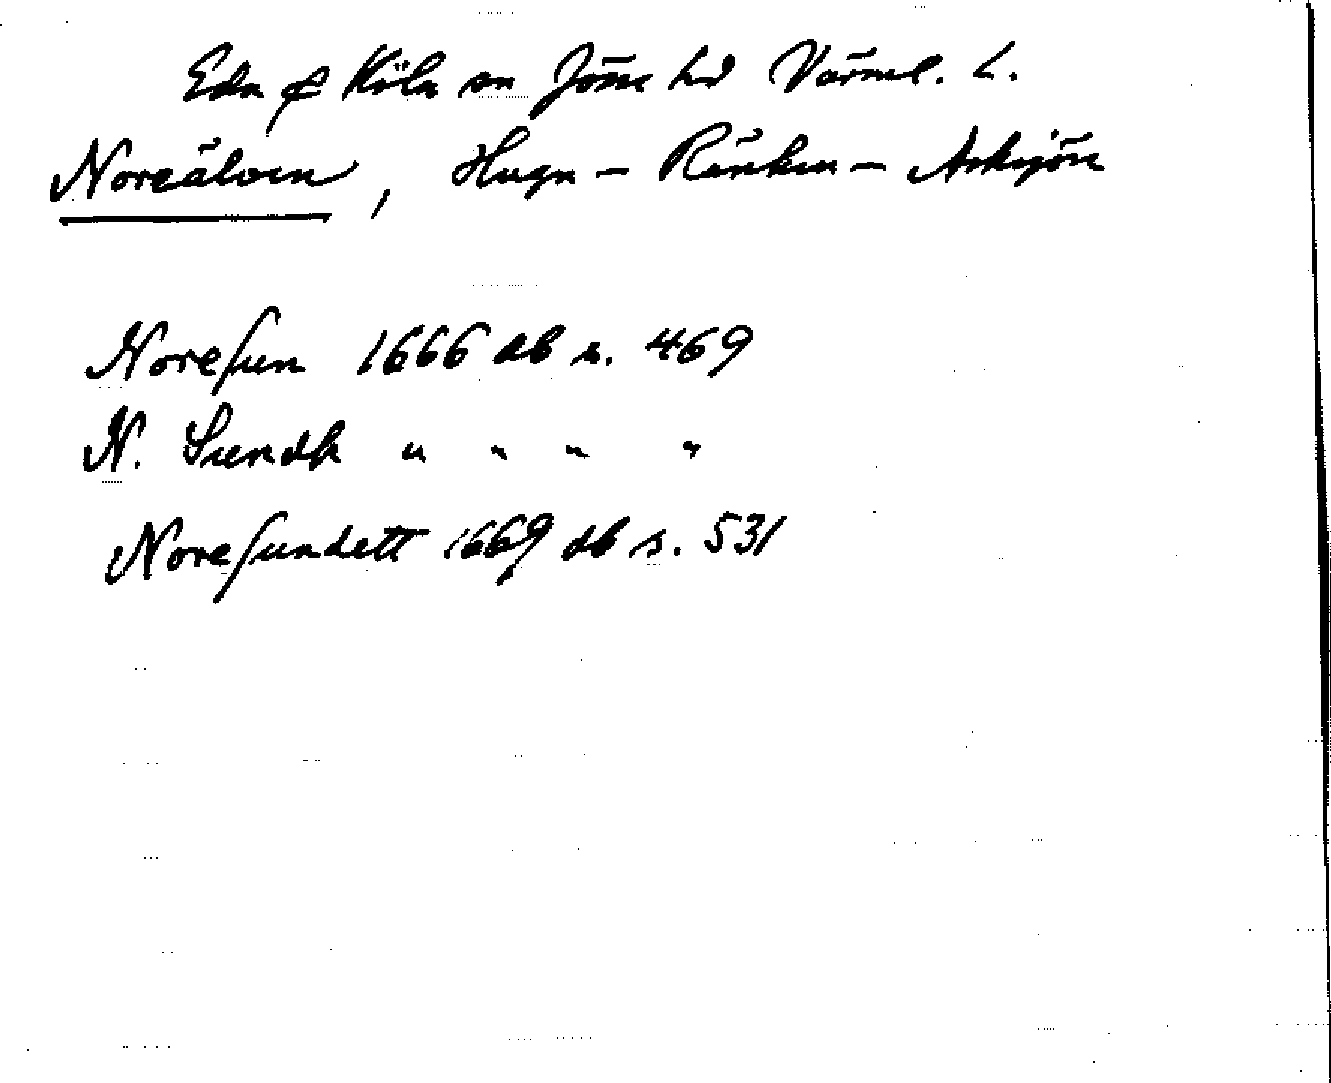 Eda o Köla sn Jösse hd Värml. L.
Noreälven, Hugn - Ränken - Askesjön
Noresun 1666 db s. 469
N. Sundh " " " "
Noresundett 1669 db s. 531